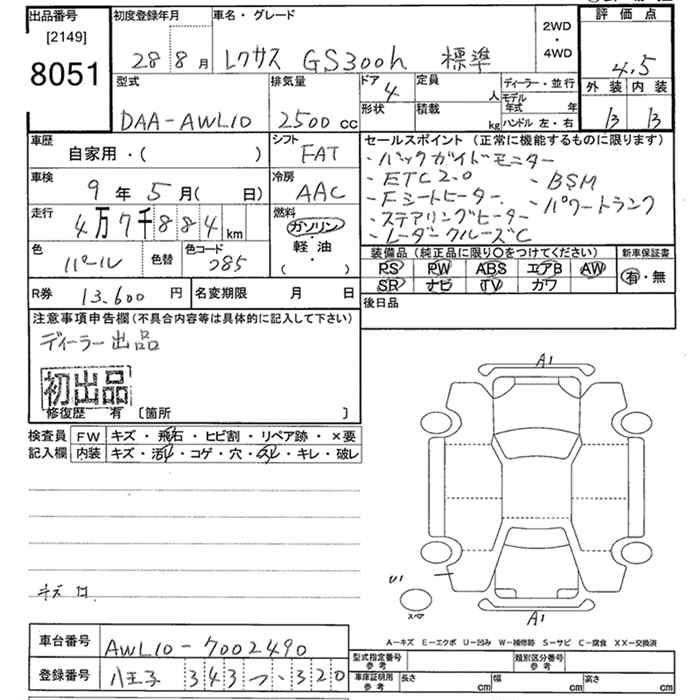 出品番号 初度登録年月 車名・グレード 評価点
[2149] 28年 8月 レクサス GS300h 標準 2WD・4WD 4.5
8051 外装 内装
型式 排気量 ドア 定員 ディーラー・並行
DAA-AWL10 2500cc 4 人 モデル年式 年 B B
形状 積載 kg ハンドル 左・右
車歴 シフト セールスポイント (正常に機能するものに限ります)
自家用・( ) FAT ・バックガイドモニター
車検 冷房 ・ETC2.0 ・BSM
9年 5月( 日) AAC ・Fシートヒーター ・パワートランク
走行 燃料 ・ステアリングヒーター
4万7千884km ガソリン・軽油・( ) ・レーダークルーズC
色 色替 色コード 装備品 (純正品に限り○をつけてください) 新車保証書
パール 085 PS PW ABS エアB AW 有・無
SR ナビ TV ガワ
R券 13,600円 名変期限 月 日 後日品
注意事項申告欄 (不具合内容等は具体的に記入して下さい)
ディーラー出品
初出品
修復歴 有 〔箇所 〕
A1
検査員 FW キズ・飛石・ヒビ割・リペア跡・×要
記入欄 内装 キズ・汚レ・コゲ・穴・スレ・キレ・破レ
キズ
U1
スペア
A1
A−キズ E−エクボ U−凹み W−補修跡 S−サビ C−腐食 XX−交換済
車台番号 AWL10-7002490
登録番号 八王子 343 つ ・320
型式指定番号 参考 類別区分番号 参考
車庫証明用 参考 長さ cm 幅 cm 高さ cm